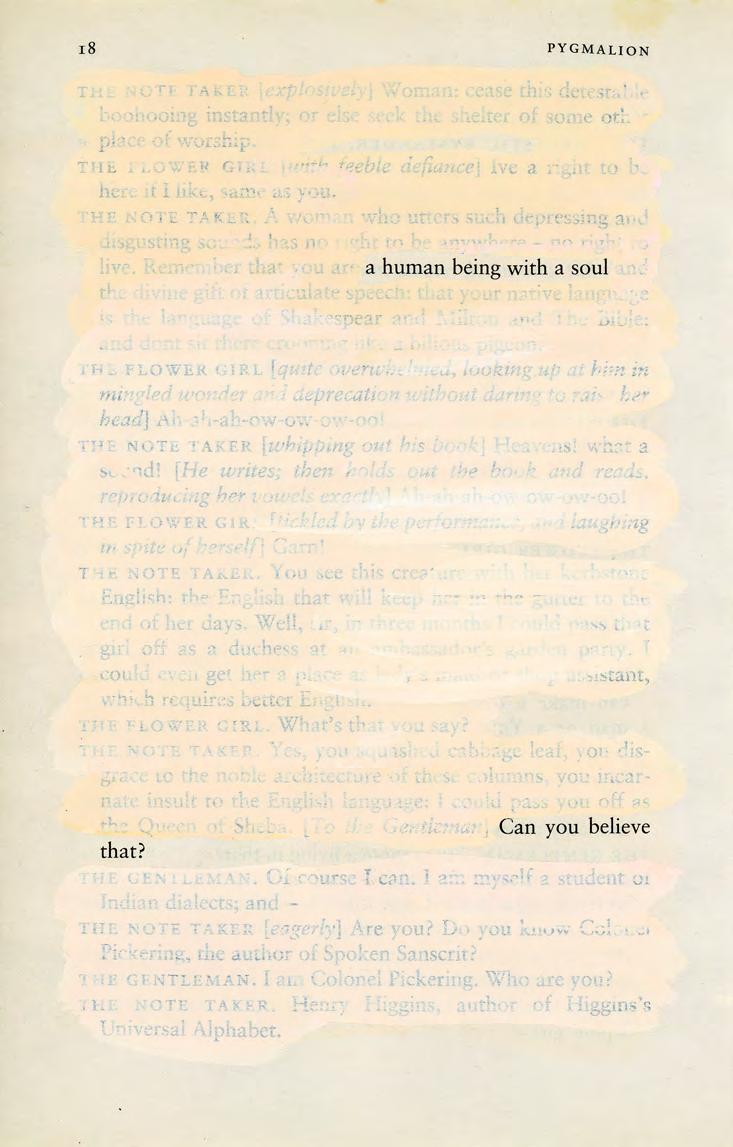 18 PYGMALION
THE NOTE TAKER [explosively] Woman: cease this detestable
boohooing instantly; or else seek the shelter of some
place of worship.
THE FLOWER GIRL [with feeble defiance] Ive a right to be
here if I like, same as you.
THE NOTE TAKER. A woman who utters such depressing and
disgusting sounds has no right to be anywhere – no right to
live. Remember that you are a human being with a soul and
the divine gift of articulate speech: that your native language
is the language of Shakespear and Milton and The Bible:
and dont sit there crooning like a bilious pigeon.
THE FLOWER GIRL [quite overwhelmed, looking up at him in
mingled wonder and deprecation without daring to raise her
head] Ah-ah-ah-ow-ow-ow-oo!
THE NOTE TAKER [whipping out his book] Heavens! what a
sound! [He writes; then holds out the book and reads,
reproducing her vowels exactly] Ah-ah-ah-ow-ow-ow-oo!
THE FLOWER GIRL [tickled by the performance, and laughing
in spite of herself] Garn!
THE NOTE TAKER. You see this creature with her kerbstone
English: the English that will keep her in the gutter to the
end of her days. Well, sir, in three months I could pass that
girl off as a duchess at an ambassador's garden party. I
could even get her a place as lady's maid or shop assistant,
which requires better English.
THE FLOWER GIRL. What's that you say?
THE NOTE TAKER. Yes, you squashed cabbage leaf, you dis-
grace to the noble architecture of these columns, you incar-
nate insult to the English language: I could pass you off as
the Queen of Sheba. [To the Gentleman] Can you believe
that?
THE GENTLEMAN. Of course I can. I am myself a student of
Indian dialects; and –
THE NOTE TAKER [eagerly] Are you? Do you know Colonel
Pickering, the author of Spoken Sanscrit?
THE GENTLEMAN. I am Colonel Pickering. Who are you?
THE NOTE TAKER. Henry Higgins, author of Higgins's
Universal Alphabet.